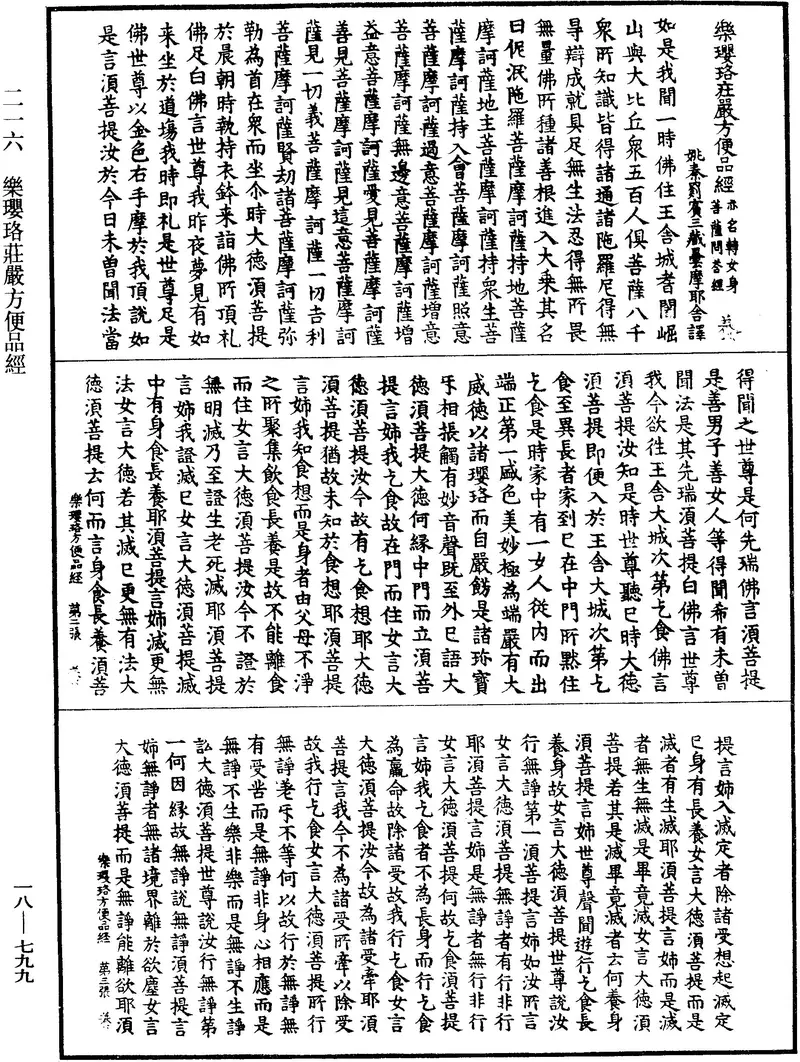 二一一六　樂瓔珞莊嚴方便品經
樂瓔珞莊嚴方便品經
亦名轉女身
菩薩問荅經
姚秦罽賓三藏曇摩耶舍譯
如是我聞一時佛住王舍城耆闍崛
山與大比丘衆五百人俱菩薩八千
衆所知識皆得諸通諸陁羅尼得無
㝵辯成就具足無生法忍得無所畏
無量佛所種諸善根進入大乗其名
曰伲泯陁羅菩薩摩訶薩持地菩薩
摩訶薩地主菩薩摩訶薩持衆生菩
薩摩訶薩持入會菩薩摩訶薩照意
菩薩摩訶薩過意菩薩摩訶薩增意
菩薩摩訶薩無邊意菩薩摩訶薩增
益意菩薩摩訶薩愛見菩薩摩訶薩
善見菩薩摩訶薩見這意菩薩摩訶
薩見一切義菩薩摩訶薩一切吉利
菩薩摩訶薩賢劫諸菩薩摩訶薩弥
勒為首在衆而坐尒時大德湏菩提
於晨朝時執持衣鉢来詣佛所頂礼
佛足白佛言世尊我昨夜夢見有如
来坐於道塲我時即礼是世尊足是
佛世尊以金色右手摩於我頂說如
是言湏菩提汝於今日未曾聞法當
得聞之世尊是何先瑞佛言湏菩提
是善男子善女人等得聞希有未曾
聞法是其先瑞湏菩提白佛言世尊
我今欲往王舍大城次第乞食佛言
湏菩提汝知是時世尊聽已時大德
湏菩提即便入於王舍大城次第乞
食至異長者家到已在中門所黙住
乞食是時家中有一女人從内而出
端正第一盛色美妙極為端嚴有大
威德以諸瓔珞而自嚴飾是諸珎寶
㸦相振觸有妙音聲既至外已語大
德湏菩提大德何緣中門而立湏菩
提言姊我乞食故在門而住女言大
德湏菩提汝今故有乞食想耶大德
湏菩提猶故未知於食想耶湏菩提
言姊我知食想而是身者由父母不淨
之所聚集飲食長養是故不能離食
而住女言大德湏菩提汝今不證於
無明滅乃至證生老死滅耶湏菩提
言姊我證滅已女言大德湏菩提滅
中有身食長養耶湏菩提言姊滅更無
法女言大德若其滅已更無有法大
德湏菩提云何而言身食長養湏菩
樂瓔珞方便品經　第二張
提言姊入滅定者除諸受想起滅定
已身有長養女言大德湏菩提而是
滅者有生滅耶湏菩提言姊而是滅
者無生無滅是畢竟滅女言大德湏
菩提若其是滅畢竟滅者云何養身
湏菩提言姊世尊聲聞遊行乞食長
養身故女言大德湏菩提世尊說汝
行無諍第一湏菩提言姊如汝所言
女言大德湏菩提無諍者有行非行
耶湏菩提言姊是無諍者無行非行
女言大德湏菩提何故乞食湏菩提
言姊我乞食者不為長身而行乞食
為羸命故除諸受故我行乞食女言
大德湏菩提汝今故為諸受牽耶湏
菩提言我今不為諸受所牽以除受
故我行乞食女言大德湏菩提所行
無諍荖㸦不等何以故行於無諍無
有受苦而是無諍非身心相應而是
無諍不生樂非樂而是無諍不生諍
訟大德湏菩提世尊說汝行無諍第
一何因緣故無諍說無諍湏菩提言
姊無諍者無諸境界離於欲塵女言
大德湏菩提而是無諍能離欲耶湏
樂瓔珞方便品經　第三張
一八—七九九